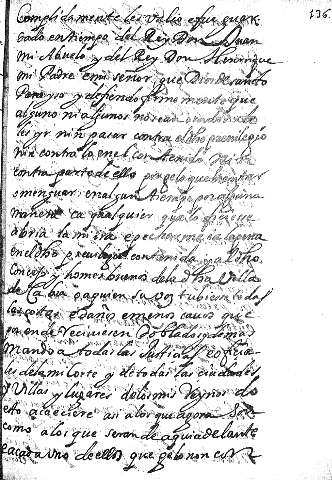 136
Complidamente les valio e fue guar
dado en tiempo del Rey Don Juan
mi Abuelo y del Rey Don Henrique
mi Padre e mi señor que Dios de santo
Parayso y defiendo firmemente que
alguno ni algunos no sean osados de
les yr ni pasar contra el dho previlegio
ni contra lo en el contenido ni
contra parte de ello por gelo quebrantar
o menguar en algun tiempo por alguna
manera ca qualquier que lo ficiere
abria la mi ira e pecharme ia la pena
en el dho previlegio contenida y al dho
Concejo y homes buenos de la dha Villa
de
o a quien su voz tubiere todas
las costas e daños e menos cavos que
por ende recivieren doblados y demas
mando a todas las Justicias e oficia
les de la mi corte y de todas las ciudades
y Villas y lugares de los mis Reynos do
esto acaeciere asi a los que agora son
como a los que seran de aqui adelante
e a cada uno de ellos que gelo non